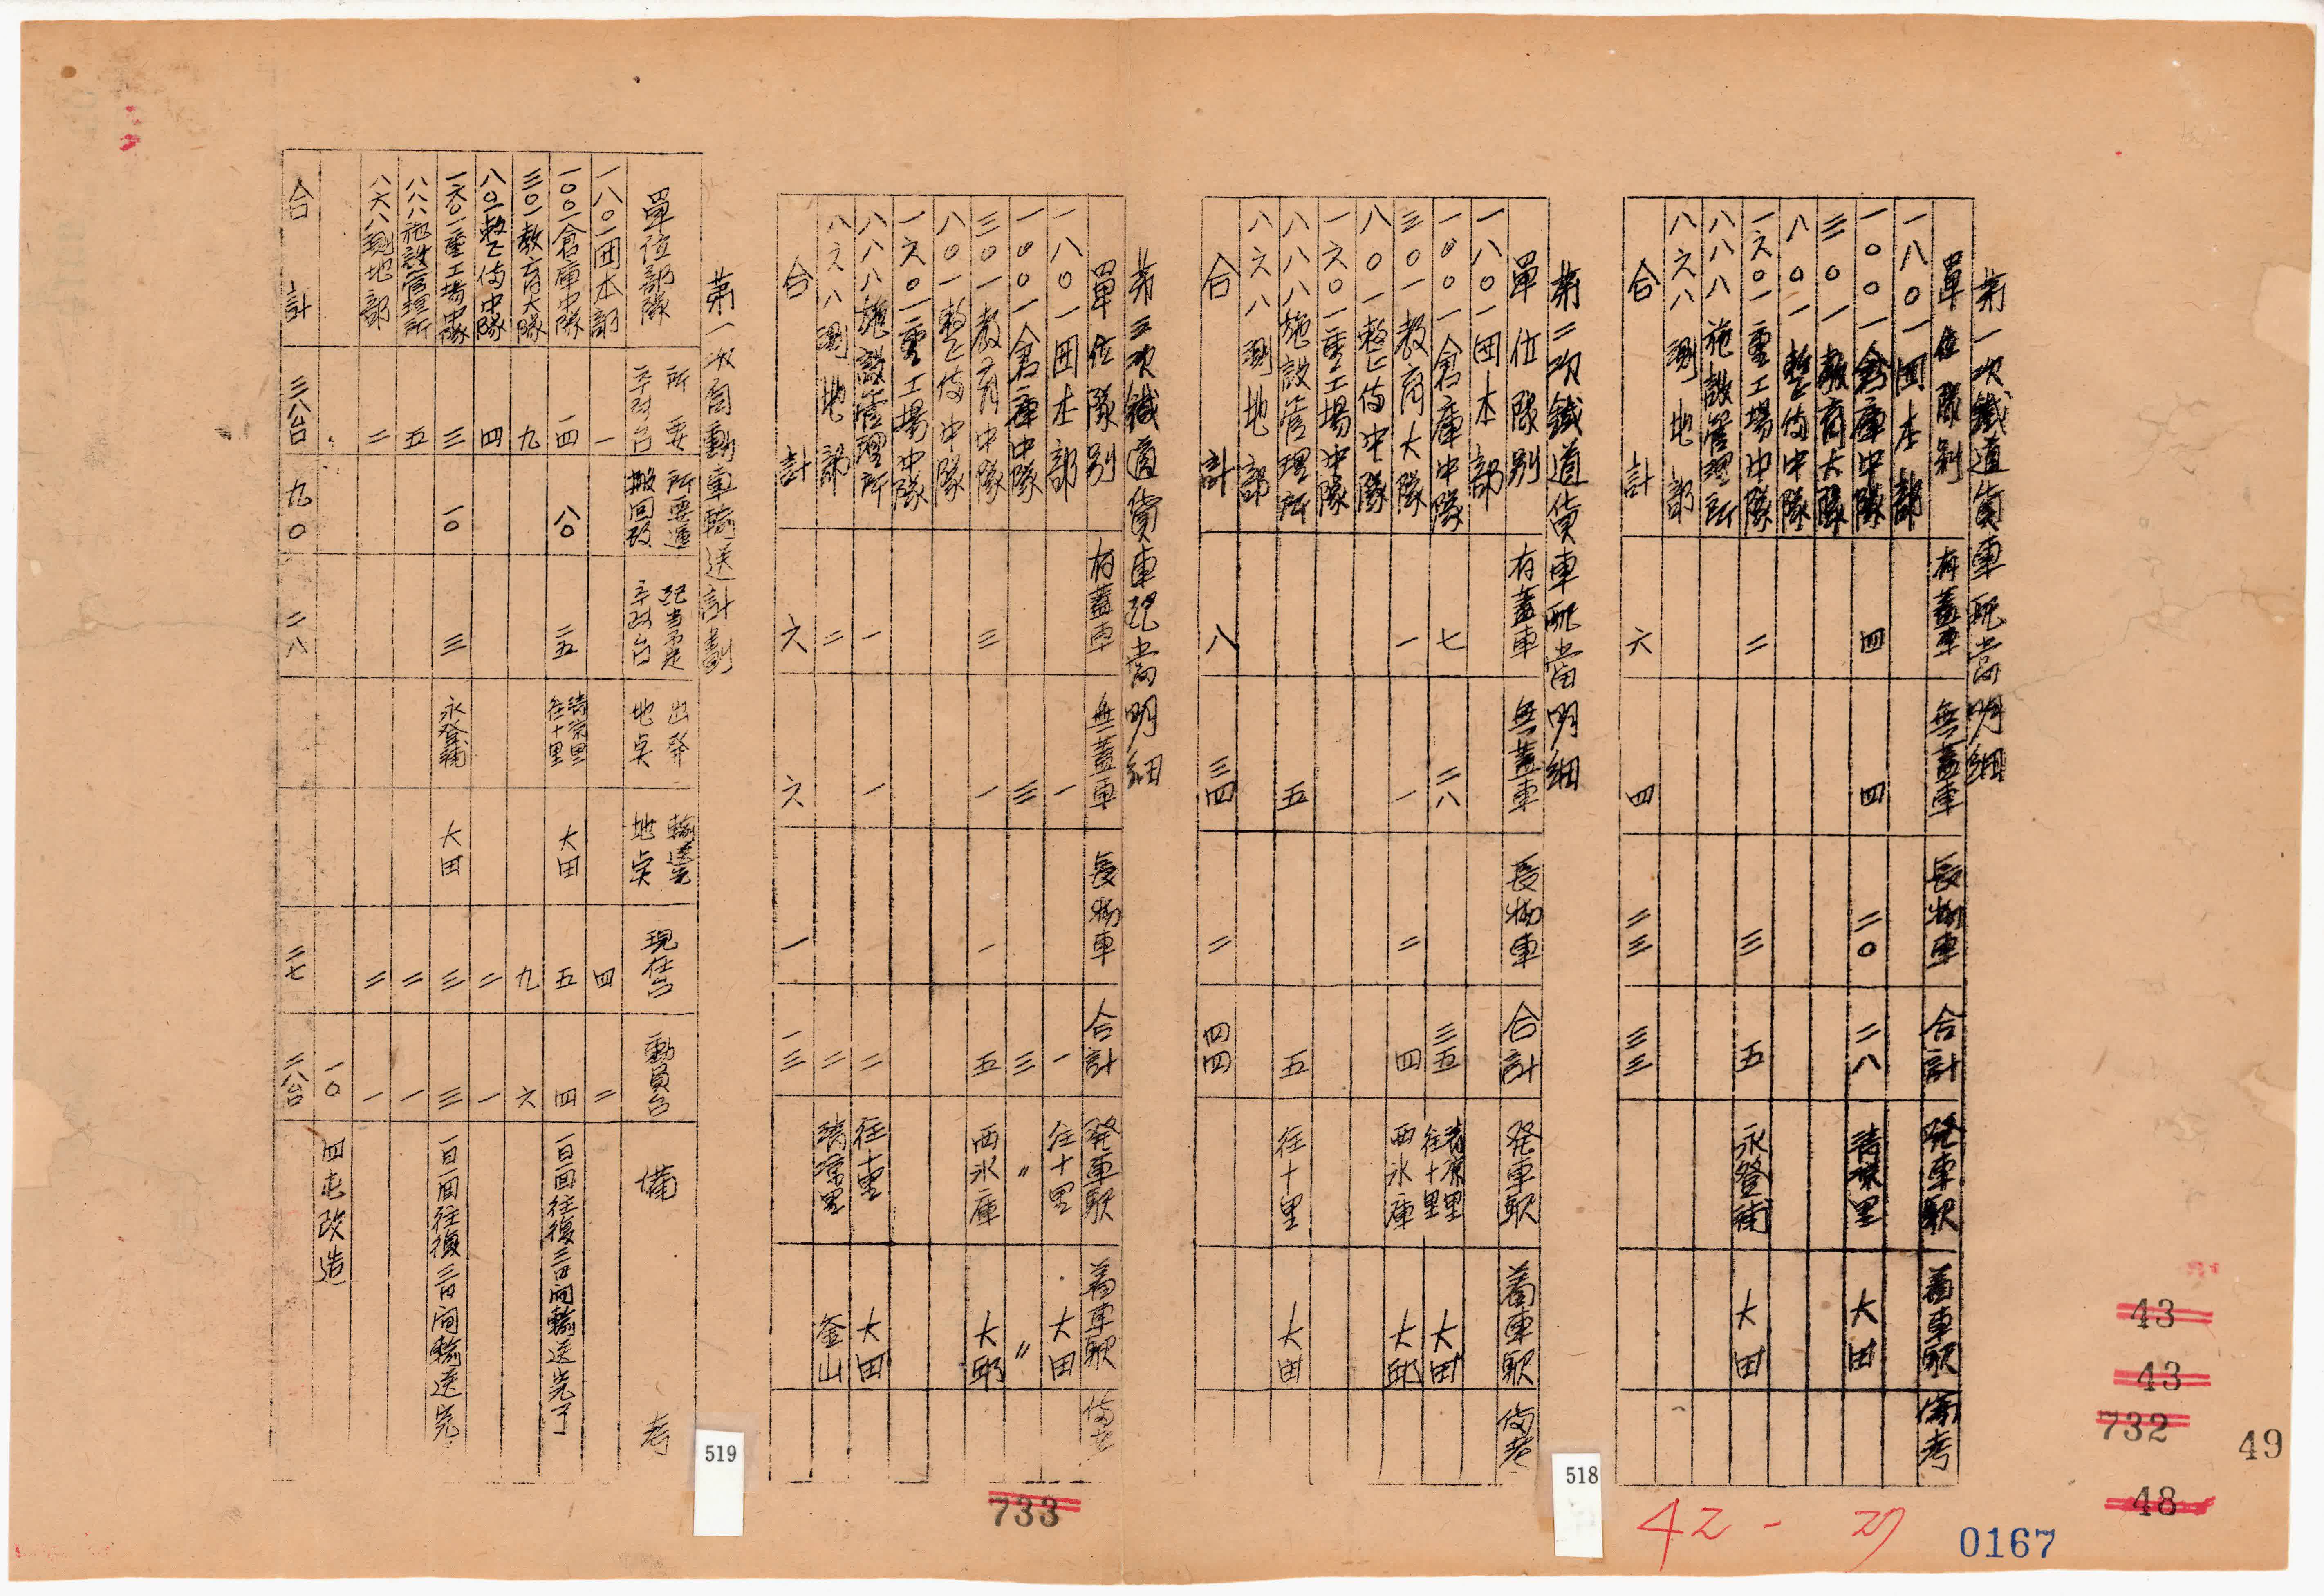 第一次鐵道貨車配當明細
單位隊別 有蓋車 無蓋車 長物車 合計 発車駅 着車駅 備考
一八〇一団本部
一〇〇一倉庫中隊 四 四 二〇 二八 清凉里 大田
三〇一教育大隊
八〇一整備中隊
一六〇一重工場中隊 二 三 五 永登浦 大田
八八八施設管理所
八六八測地部
合計 六 四 二三 三三
第二次鐵道貨車配當明細
單位隊別 有蓋車 無蓋車 長物車 合計 発車駅 着車駅 備考
一八〇一団本部
一〇〇一倉庫中隊 七 二八 三五 清凉里 往十里 大田
三〇一教育大隊 一 一 二 四 西氷庫 大邱
八〇一整備中隊
一六〇一重工場中隊
八八八施設管理所 五 五 往十里 大田
八六八測地部
合計 八 三四 二 四四
第三次鐵道貨車配當明細
單位隊別 有蓋車 無蓋車 長物車 合計 発車駅 着車駅 備考
一八〇一団本部 一 一 往十里 大田
一〇〇一倉庫中隊 三 三 〃 〃
三〇一教育中隊 三 一 一 五 西氷庫 大邱
八〇一整備中隊
一六〇一重工場中隊
八八八施設管理所 一 一 二 往十里 大田
八六八測地部 二 二 清凉里 釜山
合計 六 六 一 一三
第一次自動車輸送計劃
單位部隊 所要 台 所要運搬回数 配当予定 台 出発地点 輸送先地点 現在台 動員台 備考
一八〇一団本部 一 四 二
一〇〇一倉庫中隊 一四 八〇 二五 清凉里 往十里 大田 五 四 一日一回往復三日間輸送完了
三〇一教育大隊 九 九 六
八〇一整備中隊 四 二 一
一六〇一重工場中隊 三 一〇 三 永登浦 大田 三 三 一日一回往復三日間輸送完
八八八施設管理所 五 二 一
八六八測地部 二 二 一
一〇 四屯改造
合計 三八台 九〇 二八 二七 二八台
519
518
733
43
43
732
49
48
42 - 27
0167